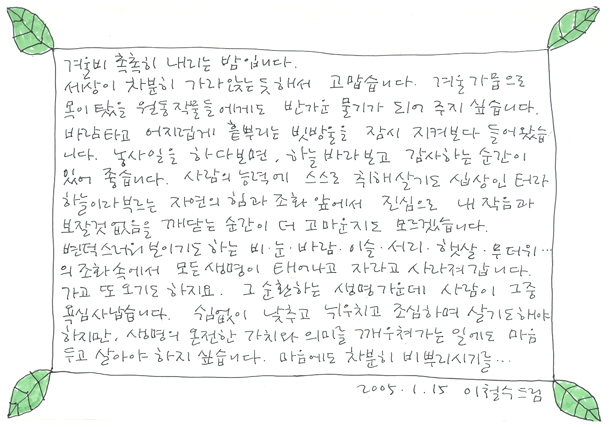 겨울비 촉촉히 내리는 밤입니다.
세상이 차분히 가라앉는 듯해서 고맙습니다. 겨울가뭄으로
목이 탔을 월동작물들에게도 반가운 물기가 되어 주지 싶습니다.
바람타고 어지럽게 흩뿌리는 빗방울을 잠시 지켜보다 들어왔습
니다. 농사일을 하다보면, 하늘 바라보고 감사하는 순간이
있어 좋습니다. 사람의 능력에 스스로 취해살기도 십상인 터라
하늘이라 부르는 자연의 힘과 조화 앞에서 진심으로 내 작음과
보잘것 없음을 깨닫는 순간이 더 고마운지도 모르겠습니다.
변덕스러워 보이기도 하는 비·눈·바람·이슬·서리·햇살·무더위…
의 조화 속에서 모든 생명이 태어나고 자라고 사라져 갑니다.
가고 또 오기도 하지요. 그 순환하는 생명가운데 사람이 그중
욕심사납습니다. 쉼없이 낮추고 뉘우치고 조심하며 살기도해야
하지만, 생명의 온전한 가치와 의미를 깨우쳐가는 일에도 마음
두고 살아야 하지 싶습니다. 마음에도 차분히 비 뿌리시기를…
2005.1.15 이철수드림